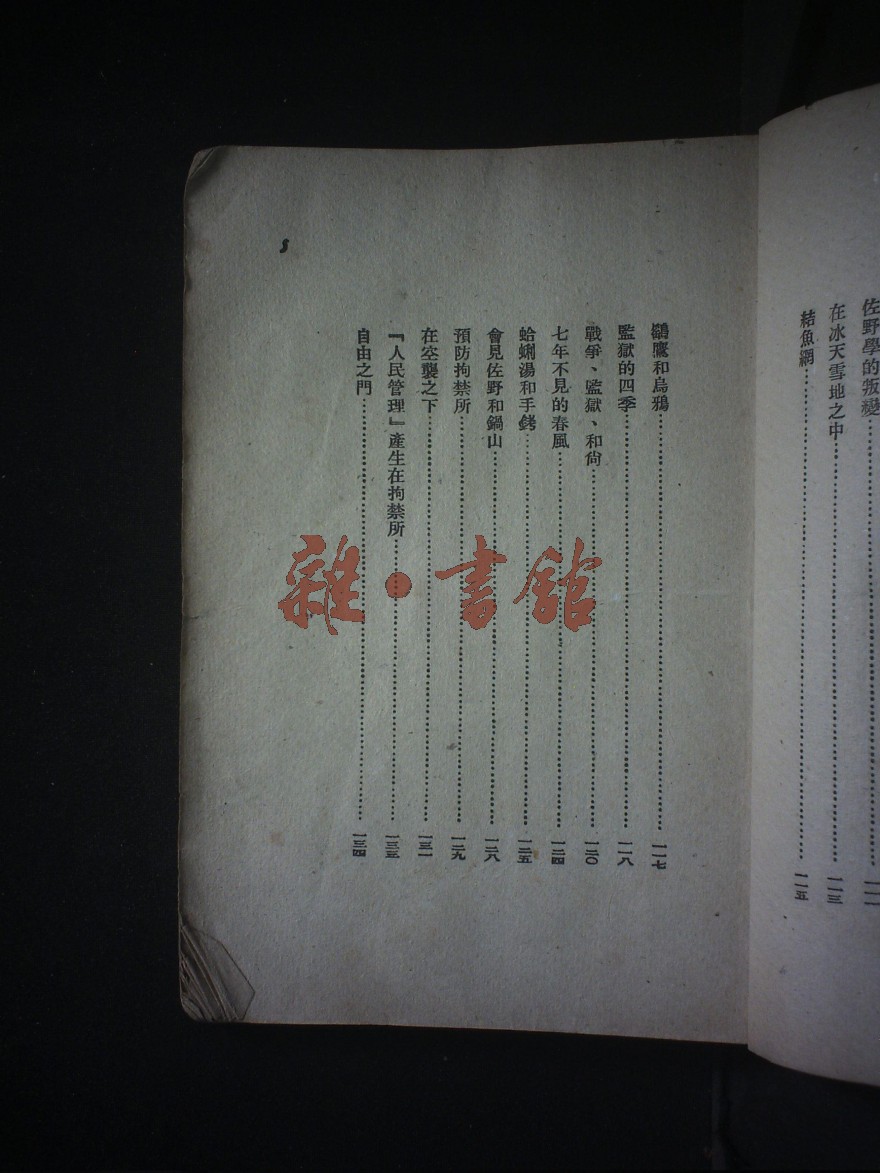 佐野學的叛變
在冰天雪地之中……一一三
結魚網……一一五
鷂鷹和烏鴉……一一七
監獄的四季……一一八
戰爭、監獄、和尙……一二〇
七年不見的春風……一二四
蛤蜊湯和手銬……一二五
會見佐野和鍋山……一二八
預防拘禁所……一二九
在空襲之下……一三一
『人民管理』產生在拘禁所……一三三
自由之門……一三四
雜·書館